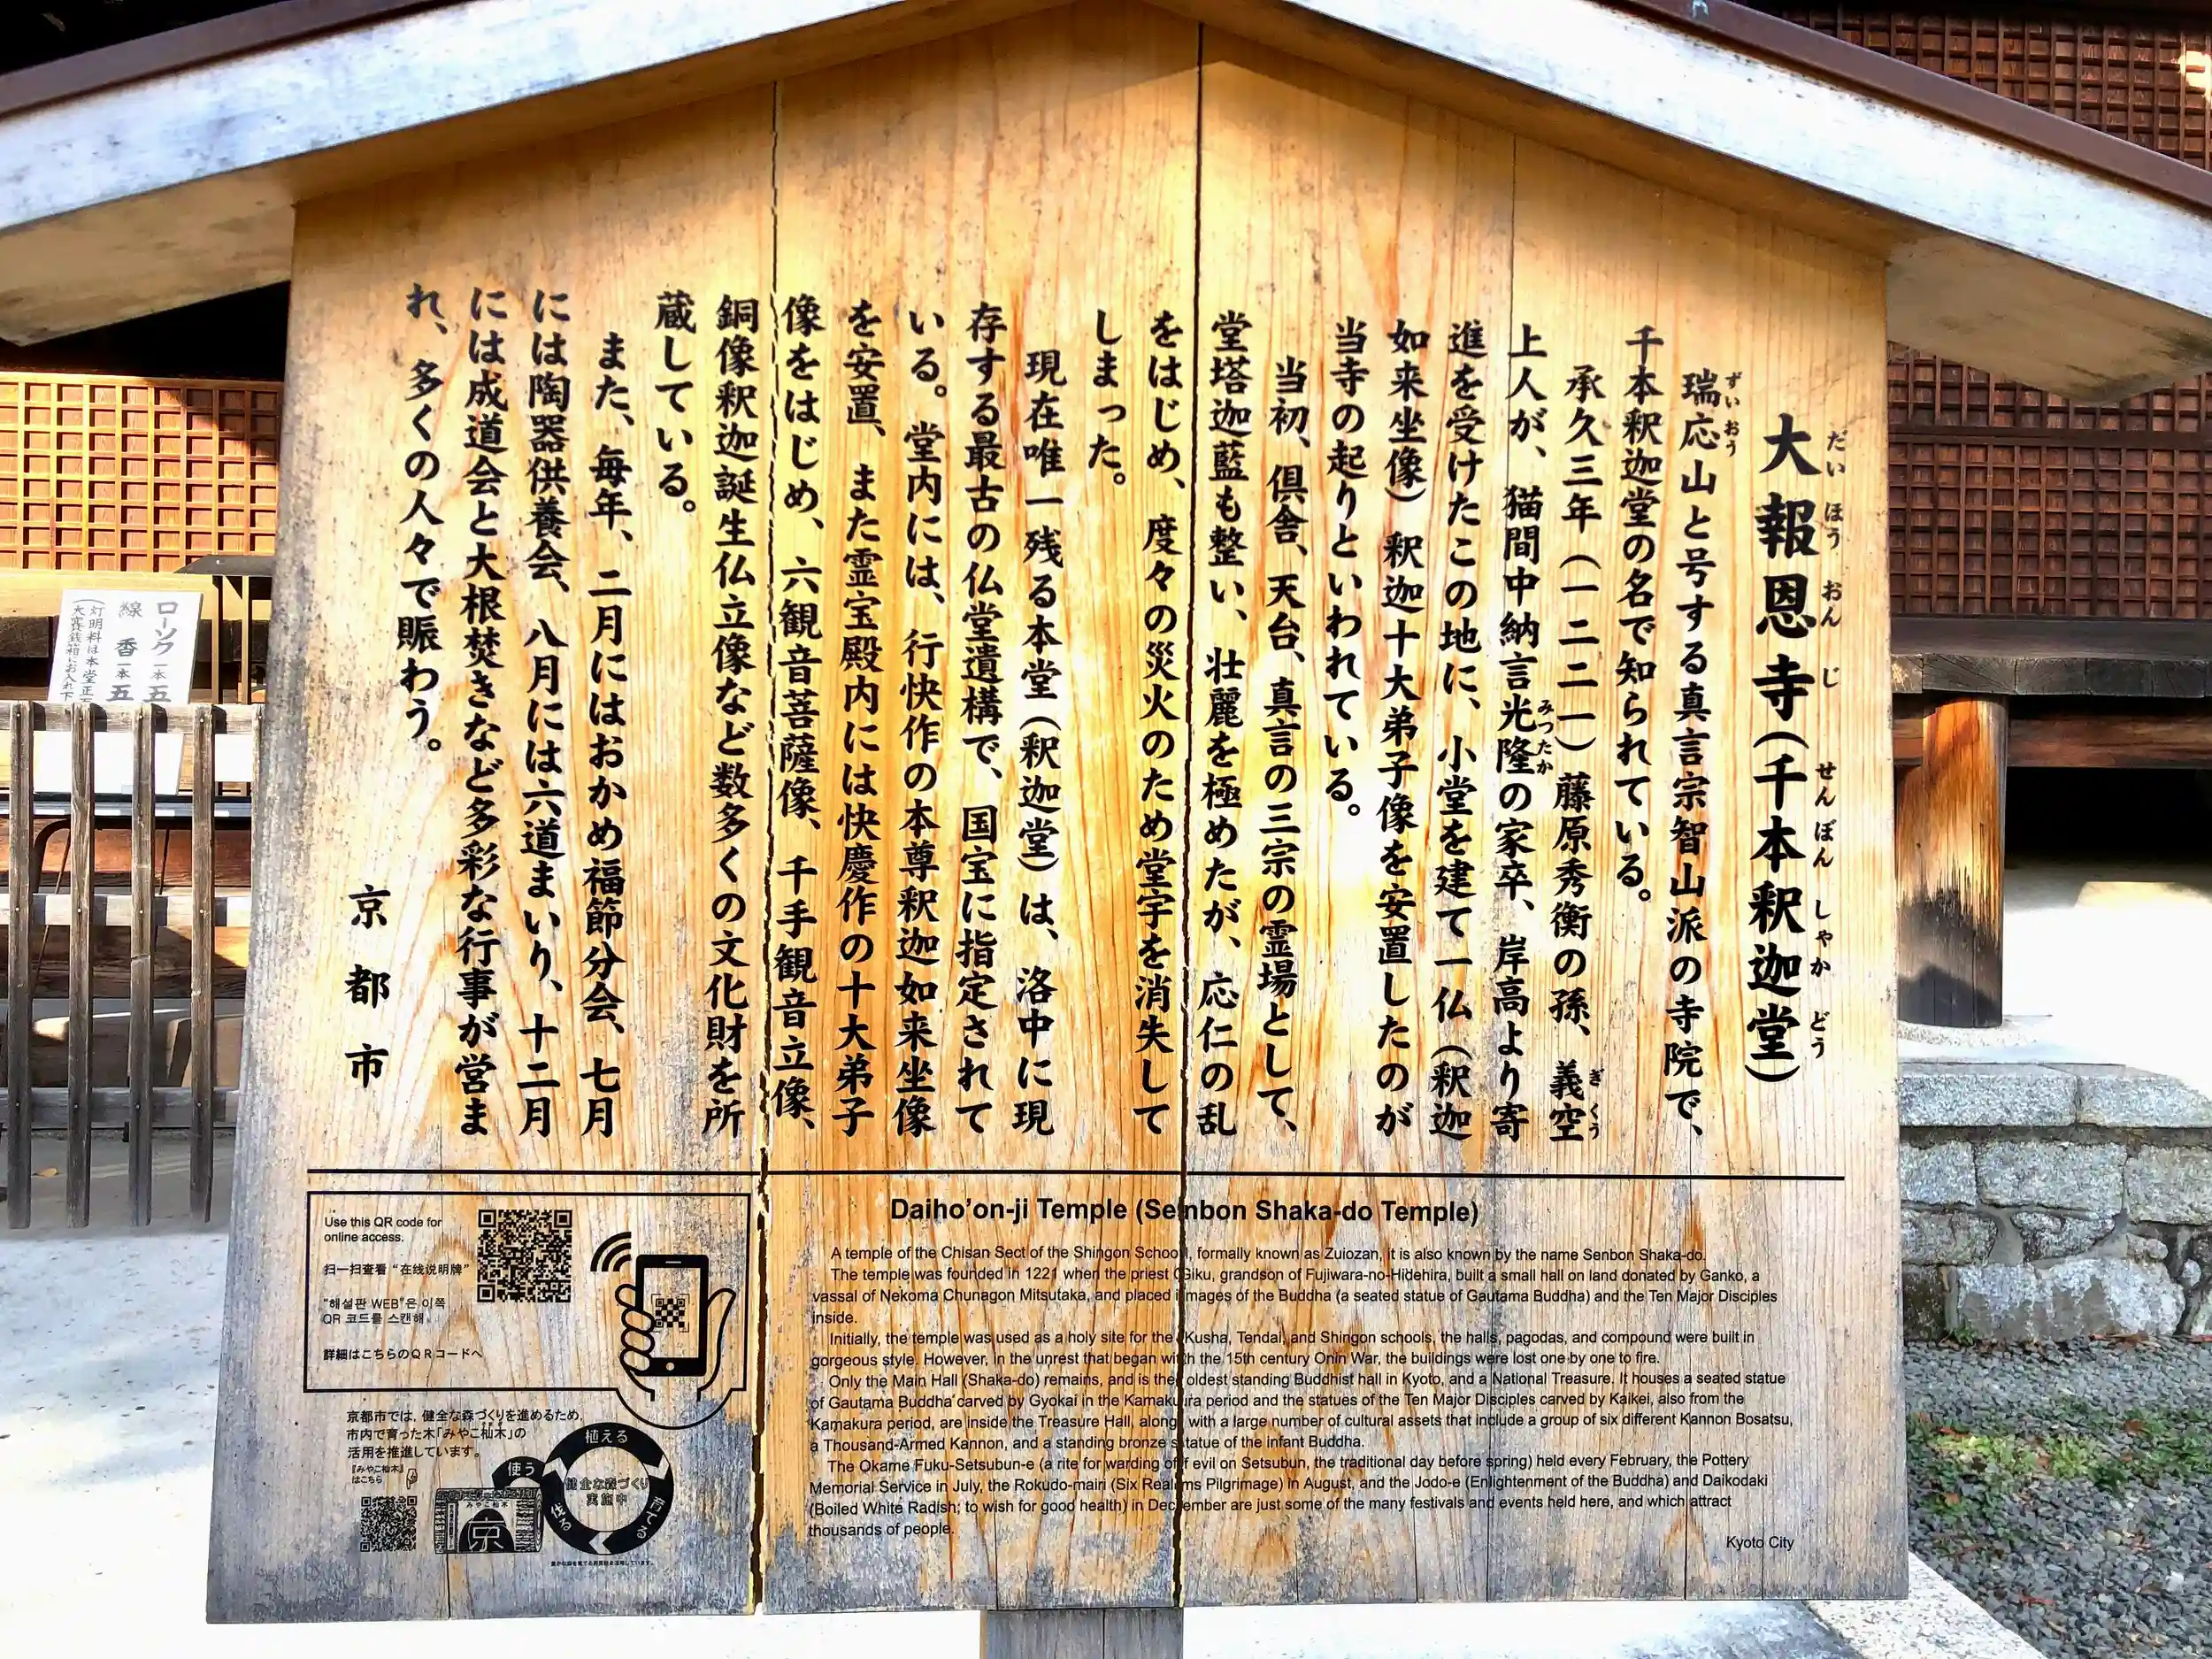 大報恩寺(千本釈迦堂)
だいほうおんじ せんぼんしゃかどう
瑞応山と号する真言宗智山派の寺院で、
ずいおう
千本釈迦堂の名で知られている。
承久三年(一二二一)藤原秀衡の孫、義空
ぎくう
上人が、猫間中納言光隆の家卒、岸高より寄
みつたか
進を受けたこの地に、小堂を建て一仏(釈迦
如来坐像)釈迦十大弟子像を安置したのが
当寺の起りといわれている。
当初、倶舎、天台、真言の三宗の霊場として、
堂塔迦藍も整い、壮麗を極めたが、応仁の乱
をはじめ、度々の災火のため堂宇を消失して
しまった。
現在唯一残る本堂(釈迦堂)は、洛中に現
存する最古の仏堂遺構で、国宝に指定されて
いる。堂内には、行快作の本尊釈迦如来坐像
を安置、また霊宝殿内には快慶作の十大弟子
像をはじめ、六観音菩薩像、千手観音立像、
銅像釈迦誕生仏立像など数多くの文化財を所
蔵している。
また、毎年、二月にはおかめ福節分会、七月
には陶器供養会、八月には六道まいり、十二月
には成道会と大根焚きなど多彩な行事が営ま
れ、多くの人々で賑わう。
京都市
Use this QR code for
online access.
扫一扫查看“在线说明牌”
"해설판 WEB"은 이쪽
QR 코드를 스캔해.
詳細はこちらのQRコードへ
京都市では,健全な森づくりを進めるため,
市内で育った木「みやこ杣木」の
活用を推進しています。
『みやこ杣木』
はこちら
みやこ杣木
京
植える
育てる
伐る
使う
健全な森づくり
実施中
Daiho'on-ji Temple (Senbon Shaka-do Temple)
A temple of the Chisan Sect of the Shingon School, formally known as Zuiozan, it is also known by the name Senbon Shaka-do.
The temple was founded in 1221 when the priest Giku, grandson of Fujiwara-no-Hidehira, built a small hall on land donated by Ganko, a
vassal of Nekoma Chunagon Mitsutaka, and placed images of the Buddha (a seated statue of Gautama Buddha) and the Ten Major Disciples
inside.
Initially, the temple was used as a holy site for the Kusha, Tendai, and Shingon schools, the halls, pagodas, and compound were built in
gorgeous style. However, in the unrest that began with the 15th century Onin War, the buildings were lost one by one to fire.
Only the Main Hall (Shaka-do) remains, and is the oldest standing Buddhist hall in Kyoto, and a National Treasure. It houses a seated statue
of Gautama Buddha carved by Gyokai in the Kamakura period and the statues of the Ten Major Disciples carved by Kaikei, also from the
Kamakura period, are inside the Treasure Hall, along with a large number of cultural assets that include a group of six different Kannon Bosatsu,
a Thousand-Armed Kannon, and a standing bronze statue of the infant Buddha.
The Okame Fuku-Setsubun-e (a rite for warding off evil on Setsubun, the traditional day before spring) held every February, the Pottery
Memorial Service in July, the Rokudo-mairi (Six Realms Pilgrimage) in August, and the Jodo-e (Enlightenment of the Buddha) and Daikodaki
(Boiled White Radish; to wish for good health) in December are just some of the many festivals and events held here, and which attract
thousands of people.
Kyoto City
ローソク 一本 五
線香 一本 五
(灯明料は本堂正
大賽銭箱にお入れ下